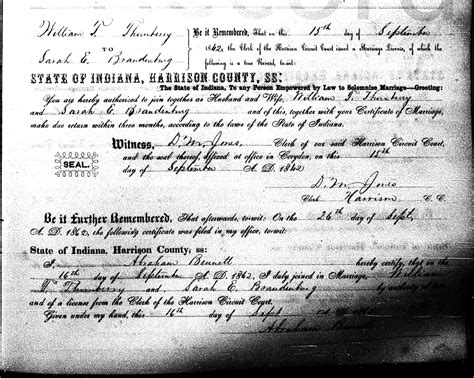 William T. Thornberry
TO
Sarah E. Brandenburg
Be it Remembered, That on the 15th day of September
1862, the Clerk of the Harrison Circuit Court issued a Marriage License, of which
the following is a true Record, to-wit:
STATE OF INDIANA, HARRISON COUNTY, SS:
The State of Indiana, To any Person Empowered by Law to Solemnize Marriage—Greeting:
You are hereby authorized to join together as Husband and Wife, William T. Thornberry
and Sarah E. Brandenburg and of this, together with your Certificate of Marriage,
make due return within three months, according to the laws of the State of Indiana.
Witness, D. W. Jones, Clerk of our said Harrison Circuit Court,
and the seal thereof, affixed at office in Corydon, on this 15th
SEAL.
day of September A. D. 1862
D. W. Jones
Clerk Harrison C. C.
Be it Further Remembered, That afterwards, to-wit: On the 26th day of Sept.
A. D. 1862, the following certificate was filed in my office, to-wit:
State of Indiana, Harrison County, ss:
I, Abraham Bennett hereby certify, that on the
16th day of September A. D. 1862, I duly joined in Marriage, William
Thornberry and Sarah E. Brandenburg by authority of
and of a license from the Clerk of the Harrison Circuit Court.
Given under my hand, this 16th day of Sept
Abraham Bennett